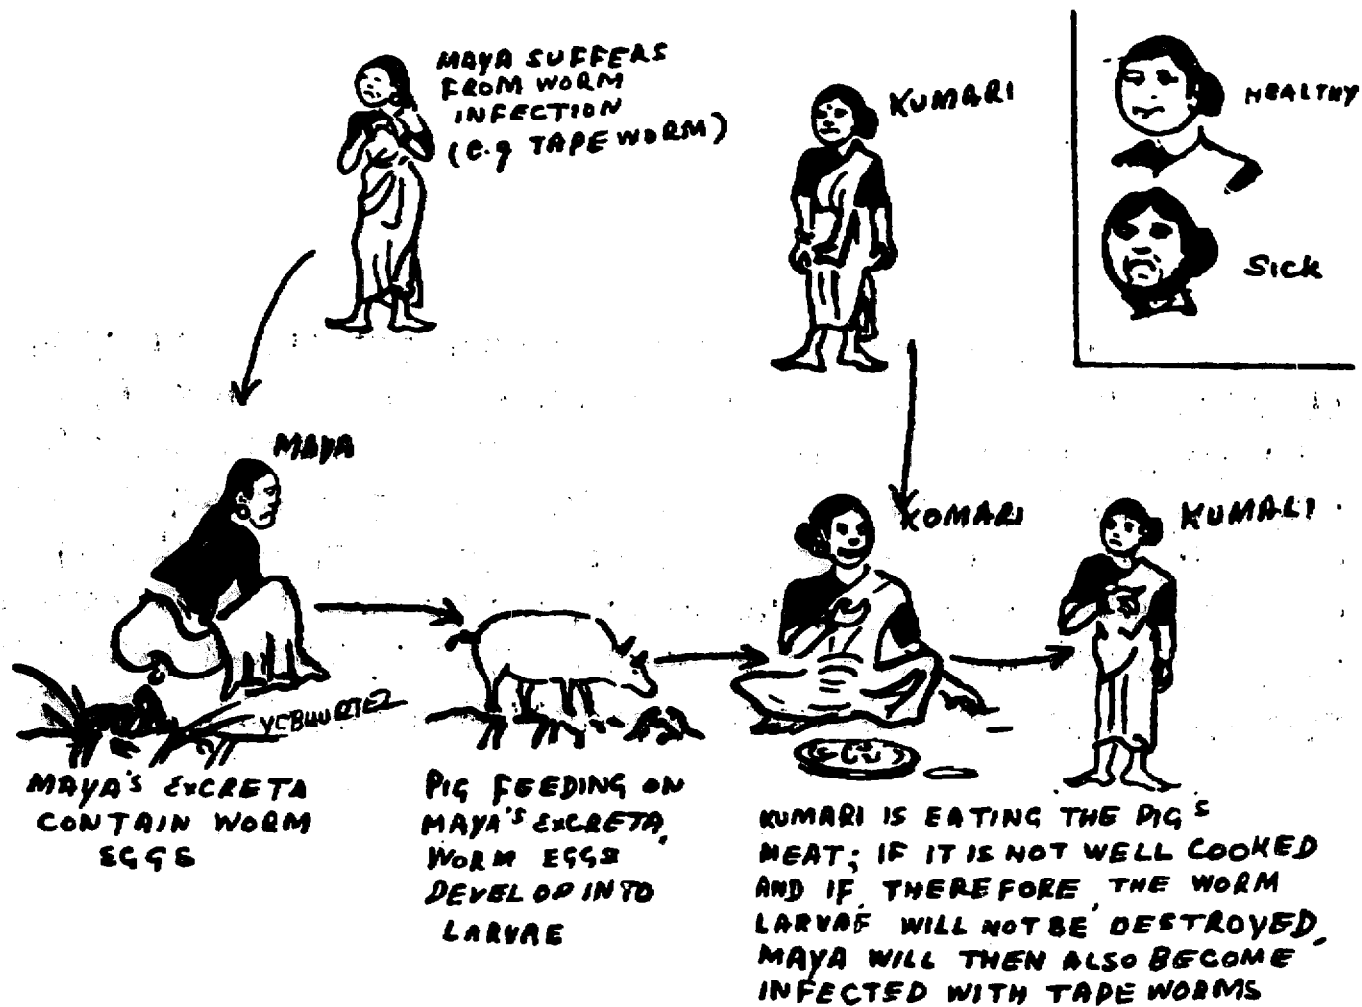 MAYA SUFFERS
FROM WORM
INFECTION
(e.g TAPE WORM)
KUMARI
HEALTHY
Sick
MAYA
KOMARI
KUMALI
MAYA'S EXCRETA
CONTAIN WORM
EGGS
PIG FEEDING ON
MAYA'S EXCRETA,
WORM EGGS
DEVELOP INTO
LARVAE
KUMARI IS EATING THE PIG'S
MEAT; IF IT IS NOT WELL COOKED
AND IF THEREFORE THE WORM
LARVAE WILL NOT BE DESTROYED,
MAYA WILL THEN ALSO BECOME
INFECTED WITH TAPE WORMS